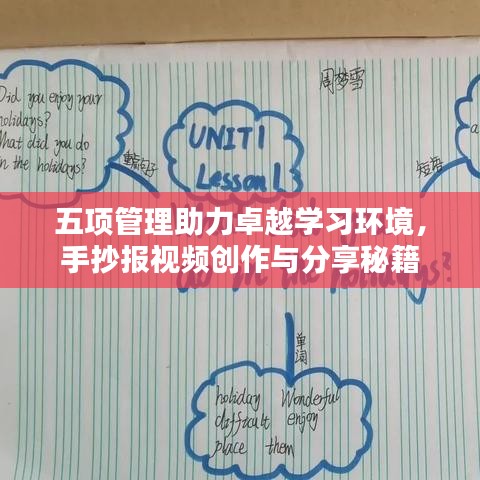 周梦雪
Did you enjoy your
holidays?
What did you do
in the holidays?
重点句子
UNIT1
Lesson1
短语
a
五项管理助力卓越学习环境，
手抄报视频创作与分享秘籍
holidays?
单词
holiday Wonderful
difficult enjoy
place them